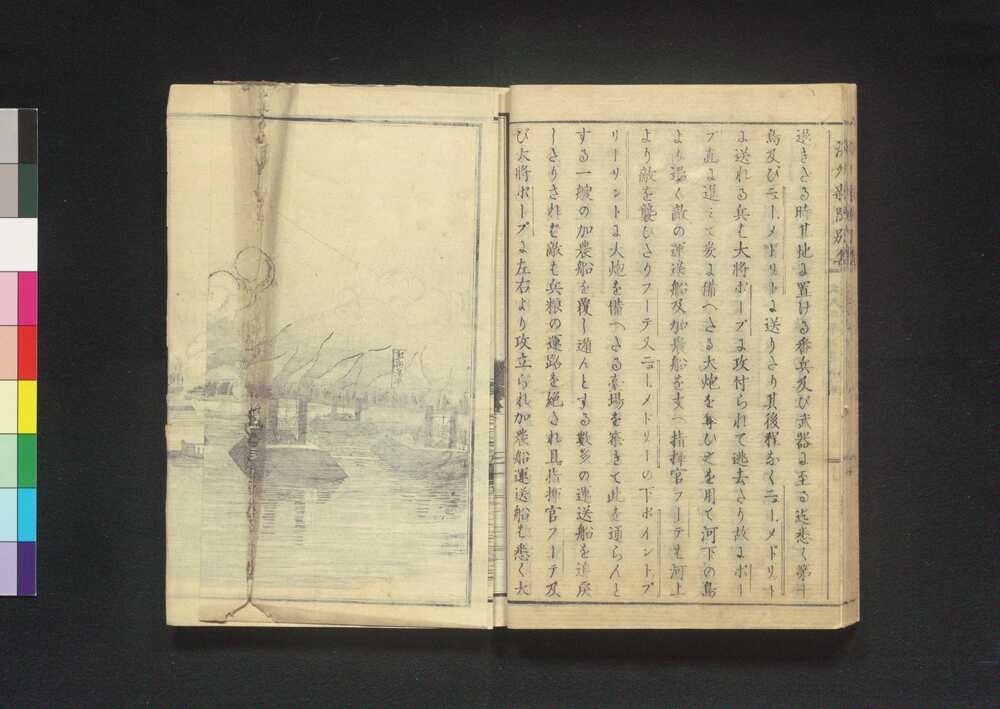 逃きさる時其地に置ける番兵及び武器に至る迄悉く第十
島及びニューメドリットに送りさり其後程なくニューメドリット
に送れる兵も大将ポープに攻付られて逃去さり故にポー
プ直に進んて敵に備へさる大炮を奪ひ之を用て河下の島
より遥く敵の運送船及加農船を支へ指揮官フーテも河上
より敵を襲ひさりフーテ又ニューメドリーの下ポイントプ
リーサントに大炮を備へさる臺場を築きて此を通らんと
する一艘の加農船を覆し通んとする数多の運送船を追戻
しさりされも敵も兵粮の運路を絶され且指揮官フーテ及
び大将ポープに左右より攻立られ加農船運送船も悉く大